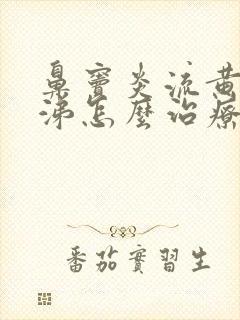 鼻竇炎流黃
涕怎麼治療
番茄實習生